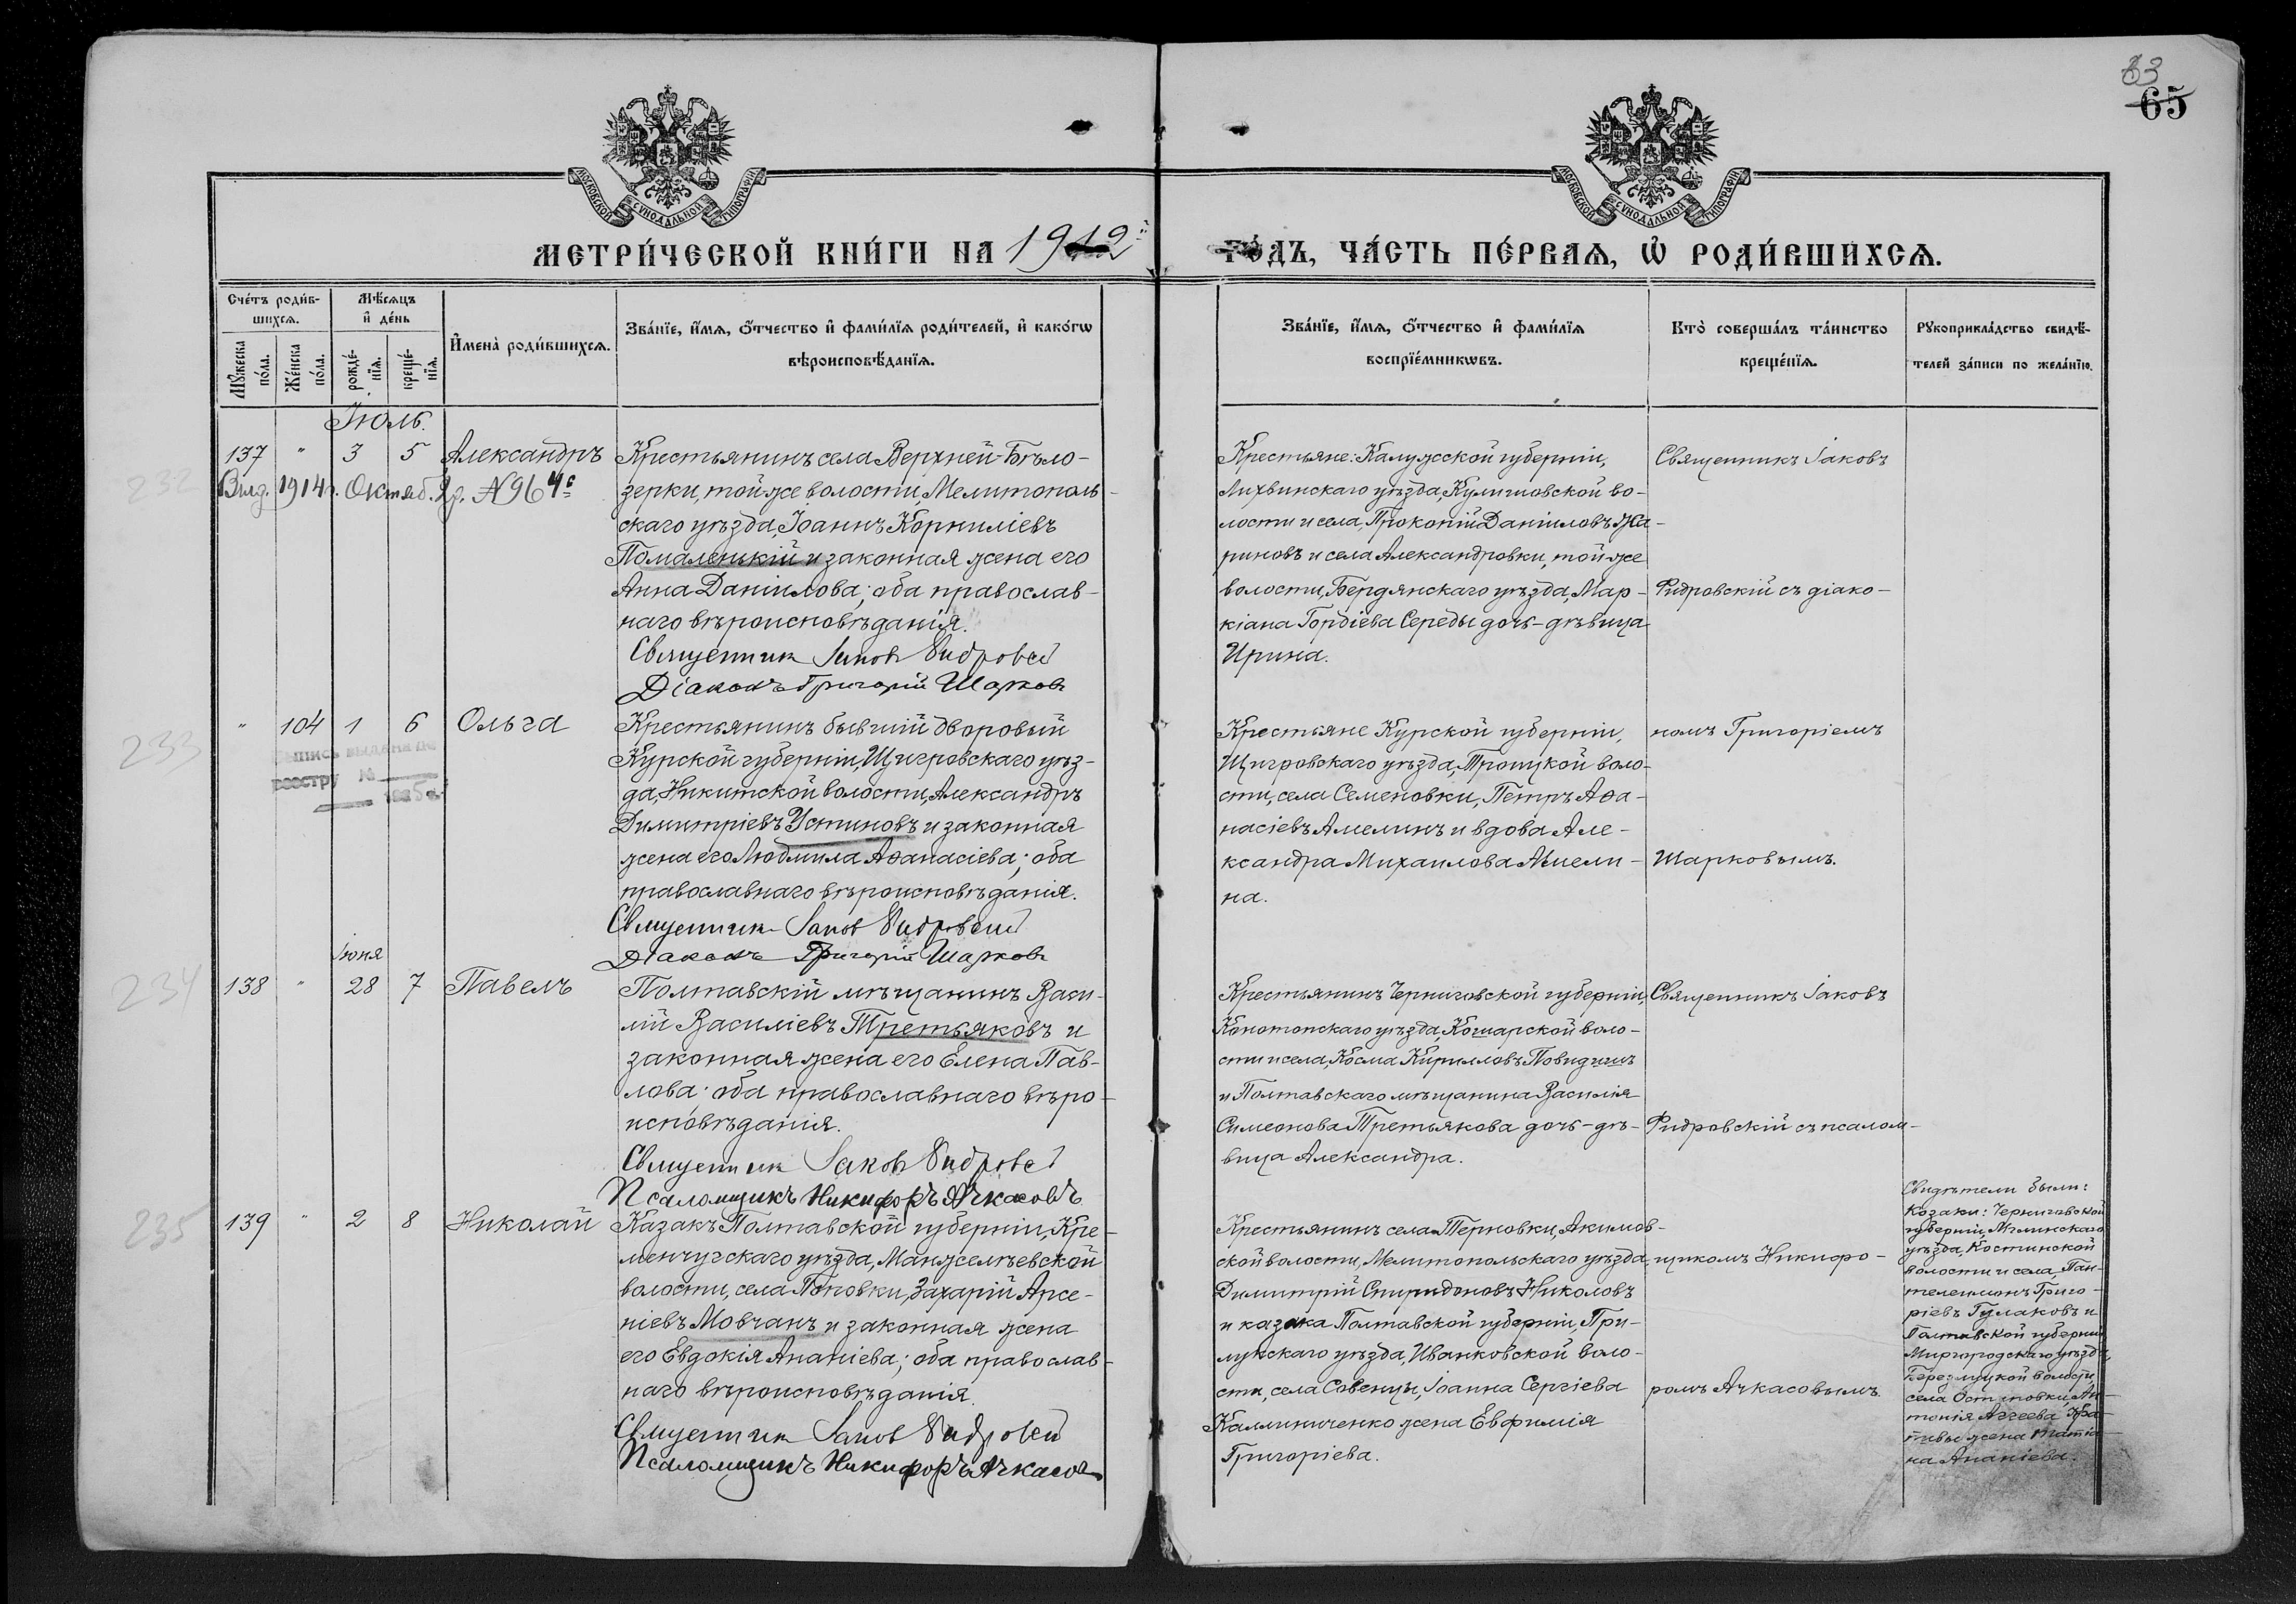 63
65
МОСКОВСКОЙ СѴНОДАЛЬНОЙ ТИПОГРАФІИ
МОСКОВСКОЙ СѴНОДАЛЬНОЙ ТИПОГРАФІИ
МЕТРИ́ЧЕСКОЙ КНИ́ГИ НА 1912й
ГО́ДЪ, ЧА́СТЬ ПЕ́РВАѦ, Ѡ҆ РОДИ́ВШИХСѦ.
Сче́тъ роди́в-
шихсѧ.
Мꙋ́жеска
по́ла.
Же́нска
по́ла.
Мѣ́сѧцъ
и҆ де́нь
рожде́-
нїѧ.
креще́-
нїѧ.
И҆мена̀ роди́вшихсѧ.
Зва́нїе, и҆́мѧ, ѻ҆́тчество и҆ фами́лїѧ роди́телей, и҆ како́гѡ
вѣроисповѣ́данїѧ.
Зва́нїе, и҆́мѧ, ѻ҆́тчество и҆ фами́лїѧ
воспрїе́мникѡвъ.
Кто̀ соверша́лъ та́инство
креще́нїѧ.
Рꙋкоприкла́дство свидѣ́-
телей за́писи по жела́нїю.
Іюль.
232
137 " 3 5 Александръ
Выд. 1914г. Октяб. 2д. №964с
Крестьянинъ села Верхней-Бѣло-
зерки, той же волости, Мелитополь-
скаго уѣзда, Іоаннъ Корниліевъ
Помаленькій и законная жена его
Анна Даніилова; оба православ-
наго вѣроисповѣданія.
Священник Іаков Фидровск
Діаконъ Григорій Шарковъ
Крестьяне: Калужской губерніи,
Лихвинскаго уѣзда, Кулишовской во-
лости и села, Прокопій Даніиловъ Жа-
риновъ и села Александровки, той же
волости, Бердянскаго уѣзда, Мар-
кіана Гордіева Середы дочь-дѣвица
Ирина.
Священникъ Іаковъ
Фидровскій съ діако-
233
" 104 1 6 Ольга
Выпись выдана по
реестру №
192 5 г.
Крестьянинъ бывшій дворовый
Курской губерніи, Щигровскаго уѣз-
да, Никитской волости, Александръ
Димитріевъ Устиновъ и законная
жена его Людмила Аѳанасіева; оба
православнаго вѣроисповѣданія.
Священник Іаков Фидровский
Діаконъ Григорій Шарковъ
Крестьяне Курской губерніи,
Щигровскаго уѣзда, Троицкой воло-
сти, села Семеновки, Петръ Аѳа-
насіевъ Амелинъ и вдова Але-
ксандра Михаилова Амели-
на.
номъ Григоріемъ
Шарковымъ.
234
Іюня
138 " 28 7 Павелъ
Полтавскій мѣщанинъ Васи-
лій Василіевъ Третьяковъ и
законная жена его Елена Пав-
лова; оба православнаго вѣро-
исповѣданія.
Священник Іаков Фидровск
Псаломщикъ Никифоръ Ачкасовъ
Крестьянинъ Черниговской губерніи,
Конотопскаго уѣзда, Кошарской воло-
сти и села, Косма Кирилловъ Повидишъ
и Полтавскаго мѣщанина Василія
Симеонова Третьякова дочь-дѣ-
вица Александра.
Священникъ Іаковъ
Фидровскій съ псалом-
235
139 " 2 8 Николай
Казакъ Полтавской губерніи, Кре-
менчугскаго уѣзда, Манжелѣевской
волости, села Поповки, Захарій Арсе-
ніевъ Мовчанъ и законная жена
его Евдокія Ананіева; оба православ-
наго вѣроисповѣданія.
Священник Іаков Фидровский
Псаломщикъ Никифоръ Ачкасов
Крестьянинъ села Терновки, Акимов-
ской волости, Мелитопольскаго уѣзда,
Димитрій Спиридоновъ Николовъ
и казака Полтавской губерніи, При-
лукскаго уѣзда, Иванковской воло-
сти, села Савенцы, Іоанна Сергіева
Калиниченко жена Евфимія
Григоріева.
щикомъ Никифо-
ромъ Ачкасовымъ.
Свидѣтели были:
Козаки: Черниговской
губерніи, Мглинскаго
уѣзда, Костинской
волости и села, Пан-
телеимонъ Григо-
ріевъ Гулаковъ и
Полтавской губерніи
Миргородскаго уѣзда,
волости,
села
тонія Аггеева
жена Татіа-
на Ананіева.